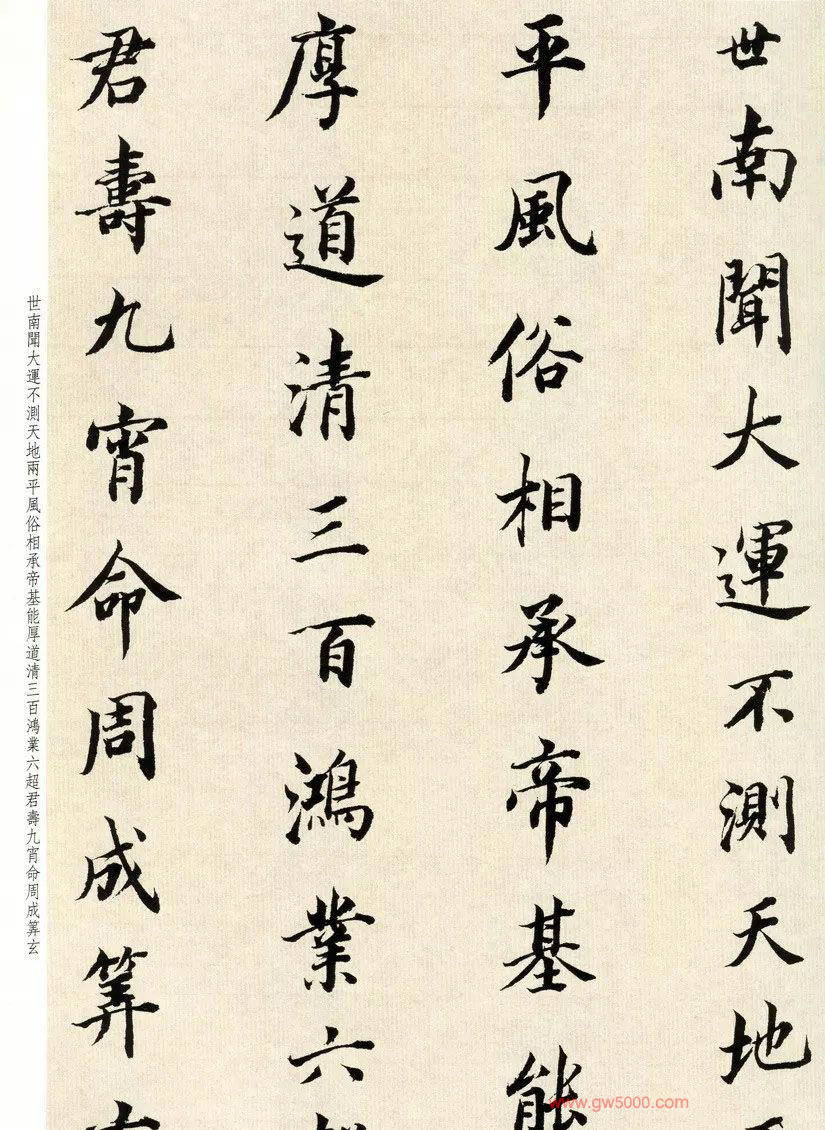 世南聞大運不測天地兩
平風俗相承帝基能
厚道清三百鴻業六超
君壽九宵命周成筭玄
世南聞大運不測天地兩平風俗相承帝基能厚道清三百鴻業六超君壽九宵命周成筭玄
www.gw5000.com